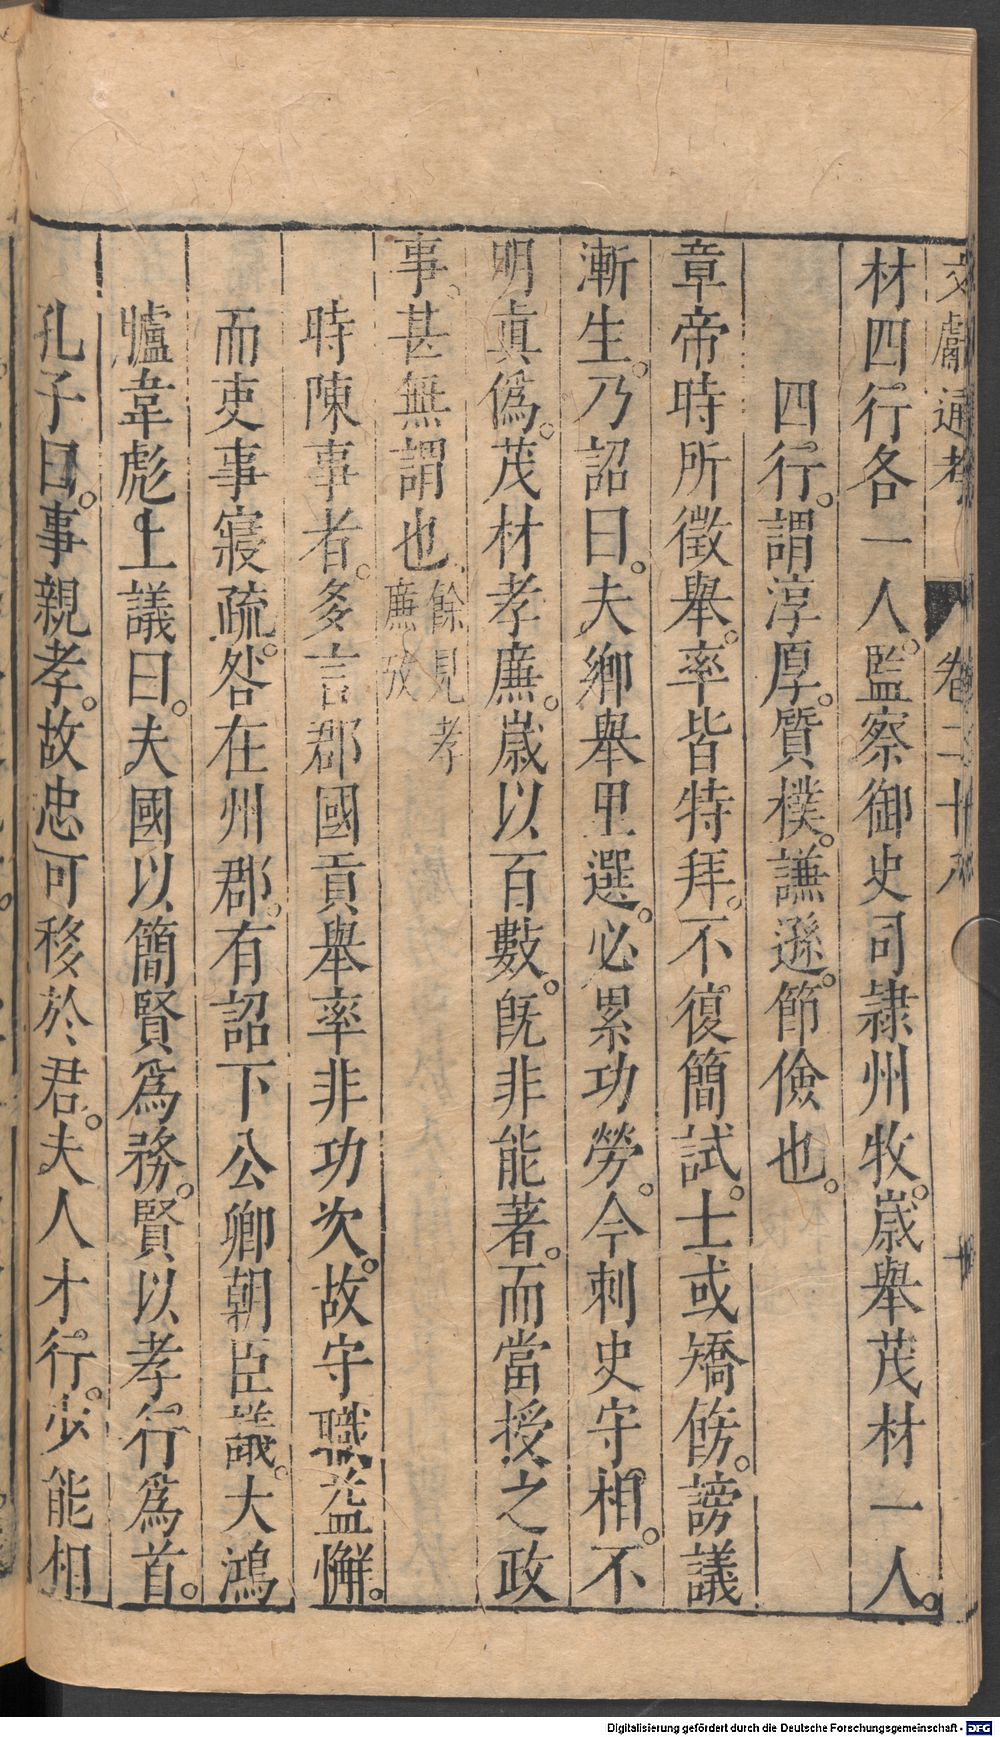 文獻通考 卷二十八 十
材四行各一人。監察御史司隸州牧。歲舉茂材一人。
四行。謂淳厚。質樸。謙遜。節儉也。
章帝時所徵舉。率皆特拜。不復簡試。士或矯飭。謗議
漸生。乃詔曰。夫鄉舉里選。必累功勞。今刺史守相。不
明眞偽。茂材孝廉。歲以百數。旣非能著。而當授之政
事。甚無謂也餘見孝廉攷
時陳事者。多言郡國貢舉率非功次。故守職益懈。
而吏事寢疏。咎在州郡。有詔下公卿朝臣議。大鴻
臚韋彪上議曰。夫國以簡賢爲務。賢以孝行爲首。
孔子曰。事親孝。故忠可移於君。夫人才行。少能相
Digitalisierung gefördert durch die Deutsche Forschungsgemeinschaft - DFG